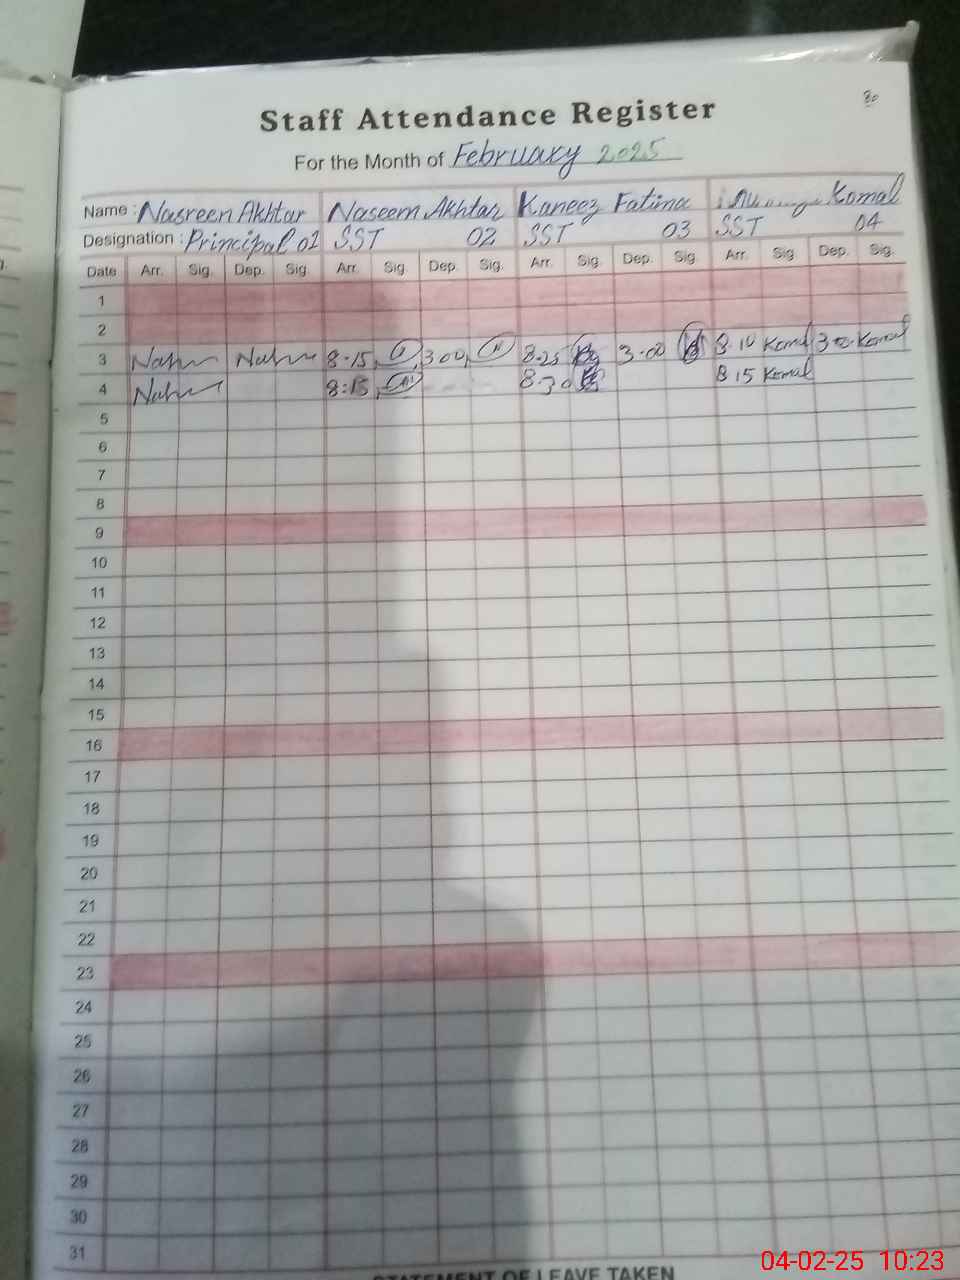 80
Staff Attendance Register
For the Month of February 2025
Name : Nasreen Akhtar Naseem Akhtar Kaneez Fatima Komal
Designation : Principal 01 SST 02 SST 03 SST 04
Date Arr. Sig. Dep. Sig. Arr. Sig. Dep. Sig. Arr. Sig. Dep. Sig. Arr. Sig. Dep. Sig.
1
2
3 8.15 3.00 8.25 3.00 8.10 Komal 3.00 Komal
4 8:15 8.30 8.15 Komal
5
6
7
8
9
10
11
12
13
14
15
16
17
18
19
20
21
22
23
24
25
26
27
28
29
30
31
STATEMENT OF LEAVE TAKEN
04-02-25 10:23